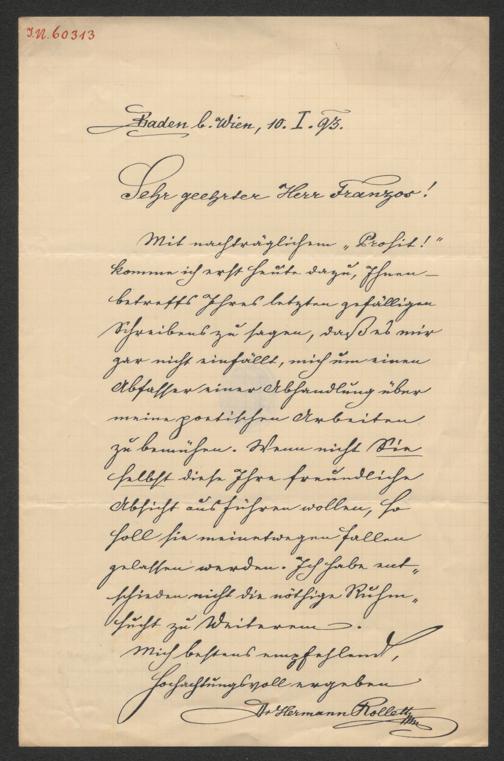 I.N. 60313
Baden b. Wien, 10. I. 93.
Sehr geehrter Herr Franzos!
Mit nachträglichem „Prosit!“
komme ich erst heute dazu, Ihnen –
betreffs Ihres letzten gefälligen
Schreibens zu sagen, daß es mir
gar nicht einfällt, mich um einen
Abfasser einer Abhandlung über
meine poetischen Arbeiten
zu bemühen. Wenn nicht Sie
selbst diese Ihre freundliche
Absicht ausführen wollen, so
soll sie meinetwegen fallen
gelassen werden. Ich habe ent„
schieden nicht die nöthige Ruhm„
sucht zu Weiterem –.
Mich bestens empfehlend,
hochachtungsvoll ergeben
Dr Hermann Rollett